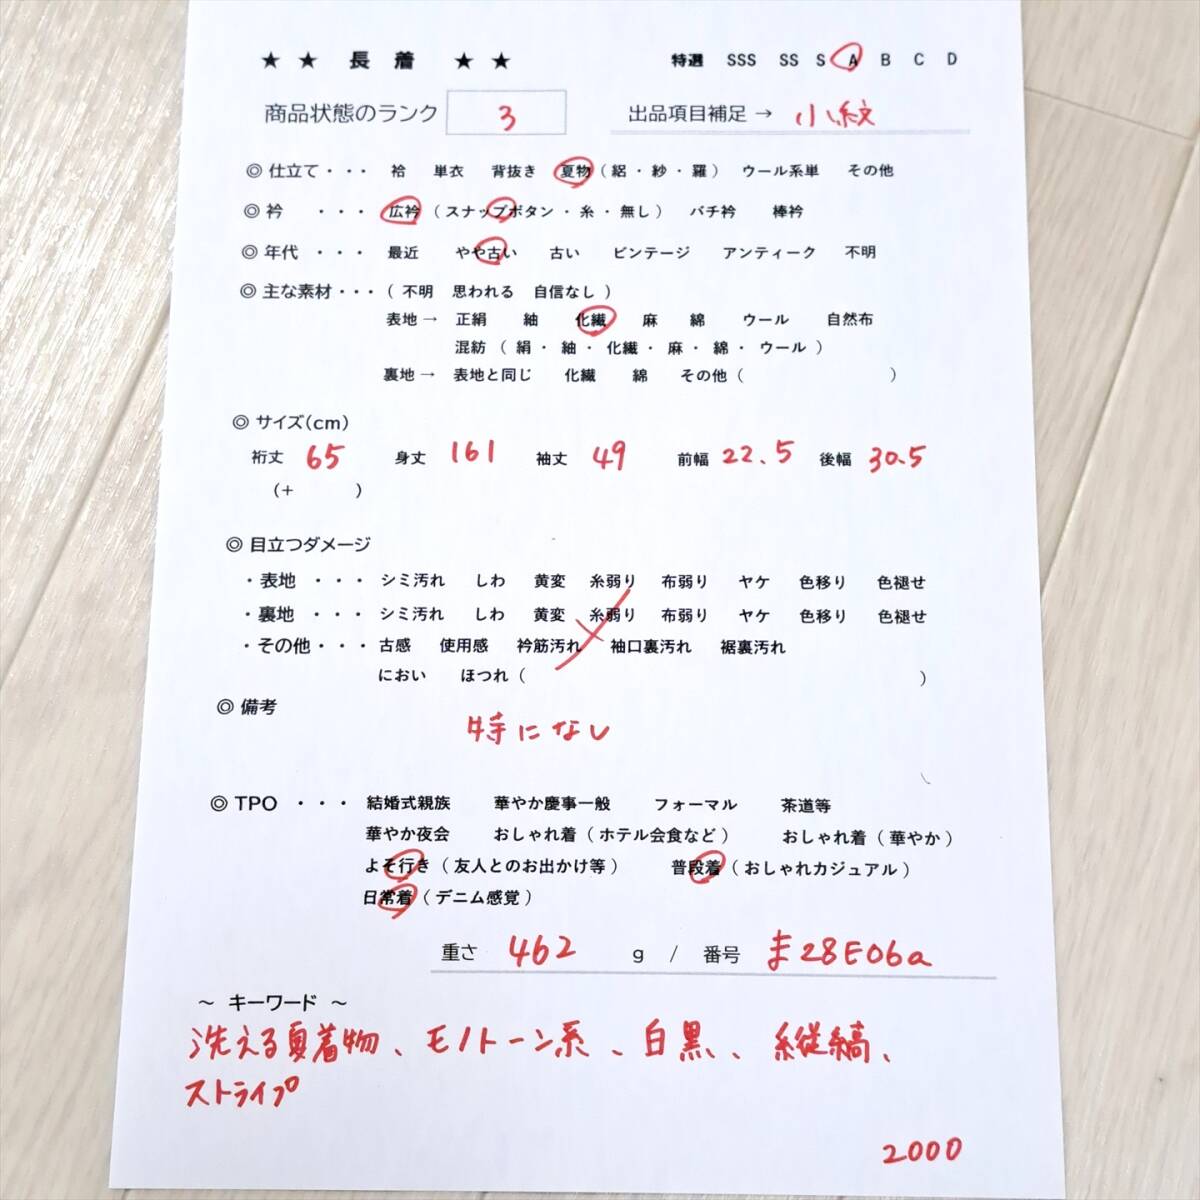 ★ ★ 長 着 ★ ★ 特選 SSS SS S A B C D
商品状態のランク 3 出品項目補足 → 小紋
◎ 仕立て・・・ 袷 単衣 背抜き 夏物 ( 絽・紗・羅 ) ウール系単 その他
◎ 衿 ・・・ 広衿 ( スナップボタン ・ 糸 ・ 無し ) バチ衿 棒衿
◎ 年代 ・・・ 最近 やや古い 古い ビンテージ アンティーク 不明
◎ 主な素材・・・( 不明 思われる 自信なし )
表地 → 正絹 紬 化繊 麻 綿 ウール 自然布
混紡 ( 絹・ 紬・ 化繊・ 麻・ 綿・ ウール )
裏地 → 表地と同じ 化繊 綿 その他 ( )
◎ サイズ(cm)
裄丈 65 身丈 161 袖丈 49 前幅 22.5 後幅 30.5
(+ )
◎ 目立つダメージ
・表地 ・・・ シミ汚れ しわ 黄変 糸弱り 布弱り ヤケ 色移り 色褪せ
・裏地 ・・・ シミ汚れ しわ 黄変 糸弱り 布弱り ヤケ 色移り 色褪せ
・その他・・・ 古感 使用感 衿筋汚れ 袖口裏汚れ 裾裏汚れ
におい ほつれ ( )
◎ 備考
特になし
◎ TPO ・・・ 結婚式親族 華やか慶事一般 フォーマル 茶道等
華やか夜会 おしゃれ着 ( ホテル会食など ) おしゃれ着 ( 華やか )
よそ行き ( 友人とのお出かけ等 ) 普段着 ( おしゃれカジュアル )
日常着 ( デニム感覚 )
重さ 462 g / 番号 ま28E06a
~ キーワード ~
洗える夏着物、モノトーン系、白黒、縦縞、
ストライプ
2000